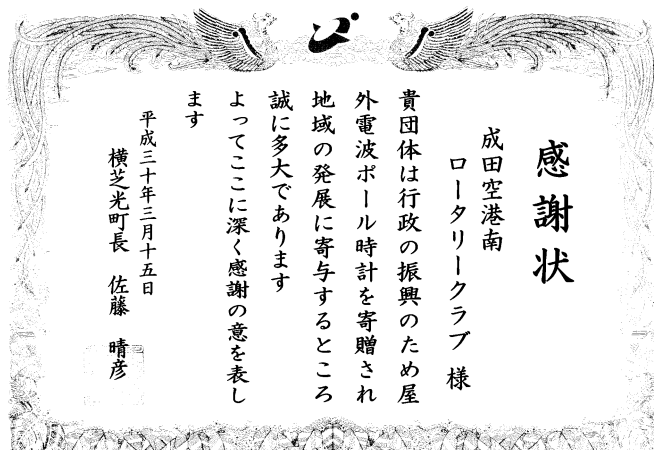 感謝状
成田空港南
ロータリークラブ 様
貴団体は行政の振興のため屋
外電波ポール時計を寄贈され
地域の発展に寄与するところ
誠に多大であります
よってここに深く感謝の意を表し
ます
平成三十年三月十五日
横芝光町長 佐藤 晴彦